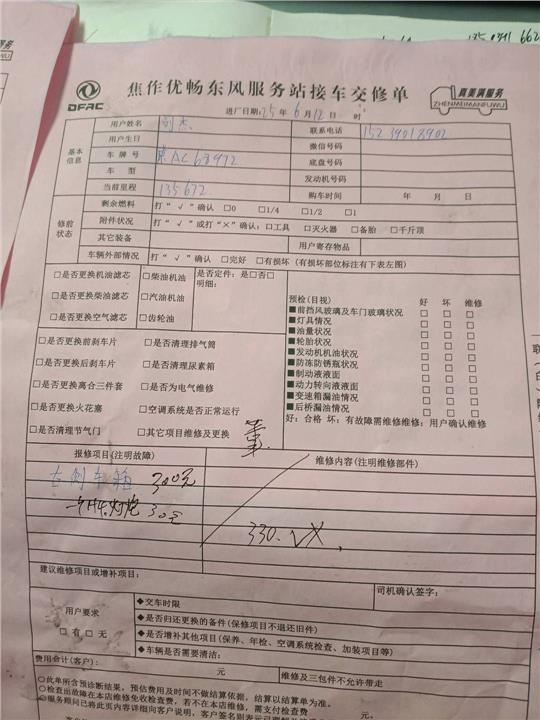 DFAC
焦作优畅东风服务站接车交修单
真美满服务
ZHENMEIMANFUWU
进厂日期:25年6月12日 时
基本信息
用户姓名 刘杰 联系电话 15239018902
用户生日 微信号码
车牌号 AC68972 底盘号码
车型 发动机号码
当前里程 135672 购车时间 年 月 日
修前状态
剩余燃料 打“√”确认 □0 □1/4 □1/2 □1
附件状况 打“√”或打“×”确认:□工具 □灭火器 □备胎 □千斤顶
其它装备 用户寄存物品
车辆外部情况 打“√”确认 □完好 □有损坏(有损坏部位标注有下表左图)
□是否更换机油滤芯 □柴油机油 是否定件:是□否□
明细:
□是否更换柴油滤芯 □汽油机油
□是否更换空气滤芯 □齿轮油
预检(目视) 好 坏 维修
■前挡风玻璃及车门玻璃状况 □ □ □
■灯具情况 □ □ □
■油量状况 □ □ □
■轮胎状况 □ □ □
■发动机机油状况 □ □ □
■防冻防锈瓶状况 □ □ □
■制动液液面 □ □ □
■动力转向液液面 □ □ □
■变速箱漏油情况 □ □ □
■后桥漏油情况 □ □ □
好:合格 坏:有故障需维修维修:用户确认维修
□是否更换前刹车片 □是否清理排气筒
□是否更换后刹车片 □是否清理尿素箱
□是否更换离合三件套 □是否为电气维修
□是否更换火花塞 □空调系统是否正常运行
□是否清理节气门 □其它项目维修及更换
报修项目(注明故障) 维修内容(注明维修部件)
右侧车箱 300元
H4灯炮 30元
330.
建议维修项目或增补项目:
司机确认签字:
用户要求
□有 □无
◆交车时限
◆是否归还更换的备件(保修项目不退还旧件)
◆是否增补其他项目(保养、年检、空调系统检查、加装项目等)
◆车辆是否需要清洁:
费用合计(客户): 元 维修及三包件不允许带走
○此单所含预诊断结果,预估费用及时间不做结算依据,结算以结算单为准。
○检查出故障在本店维修免收检查费,若不在本店维修,需支付检查费 元